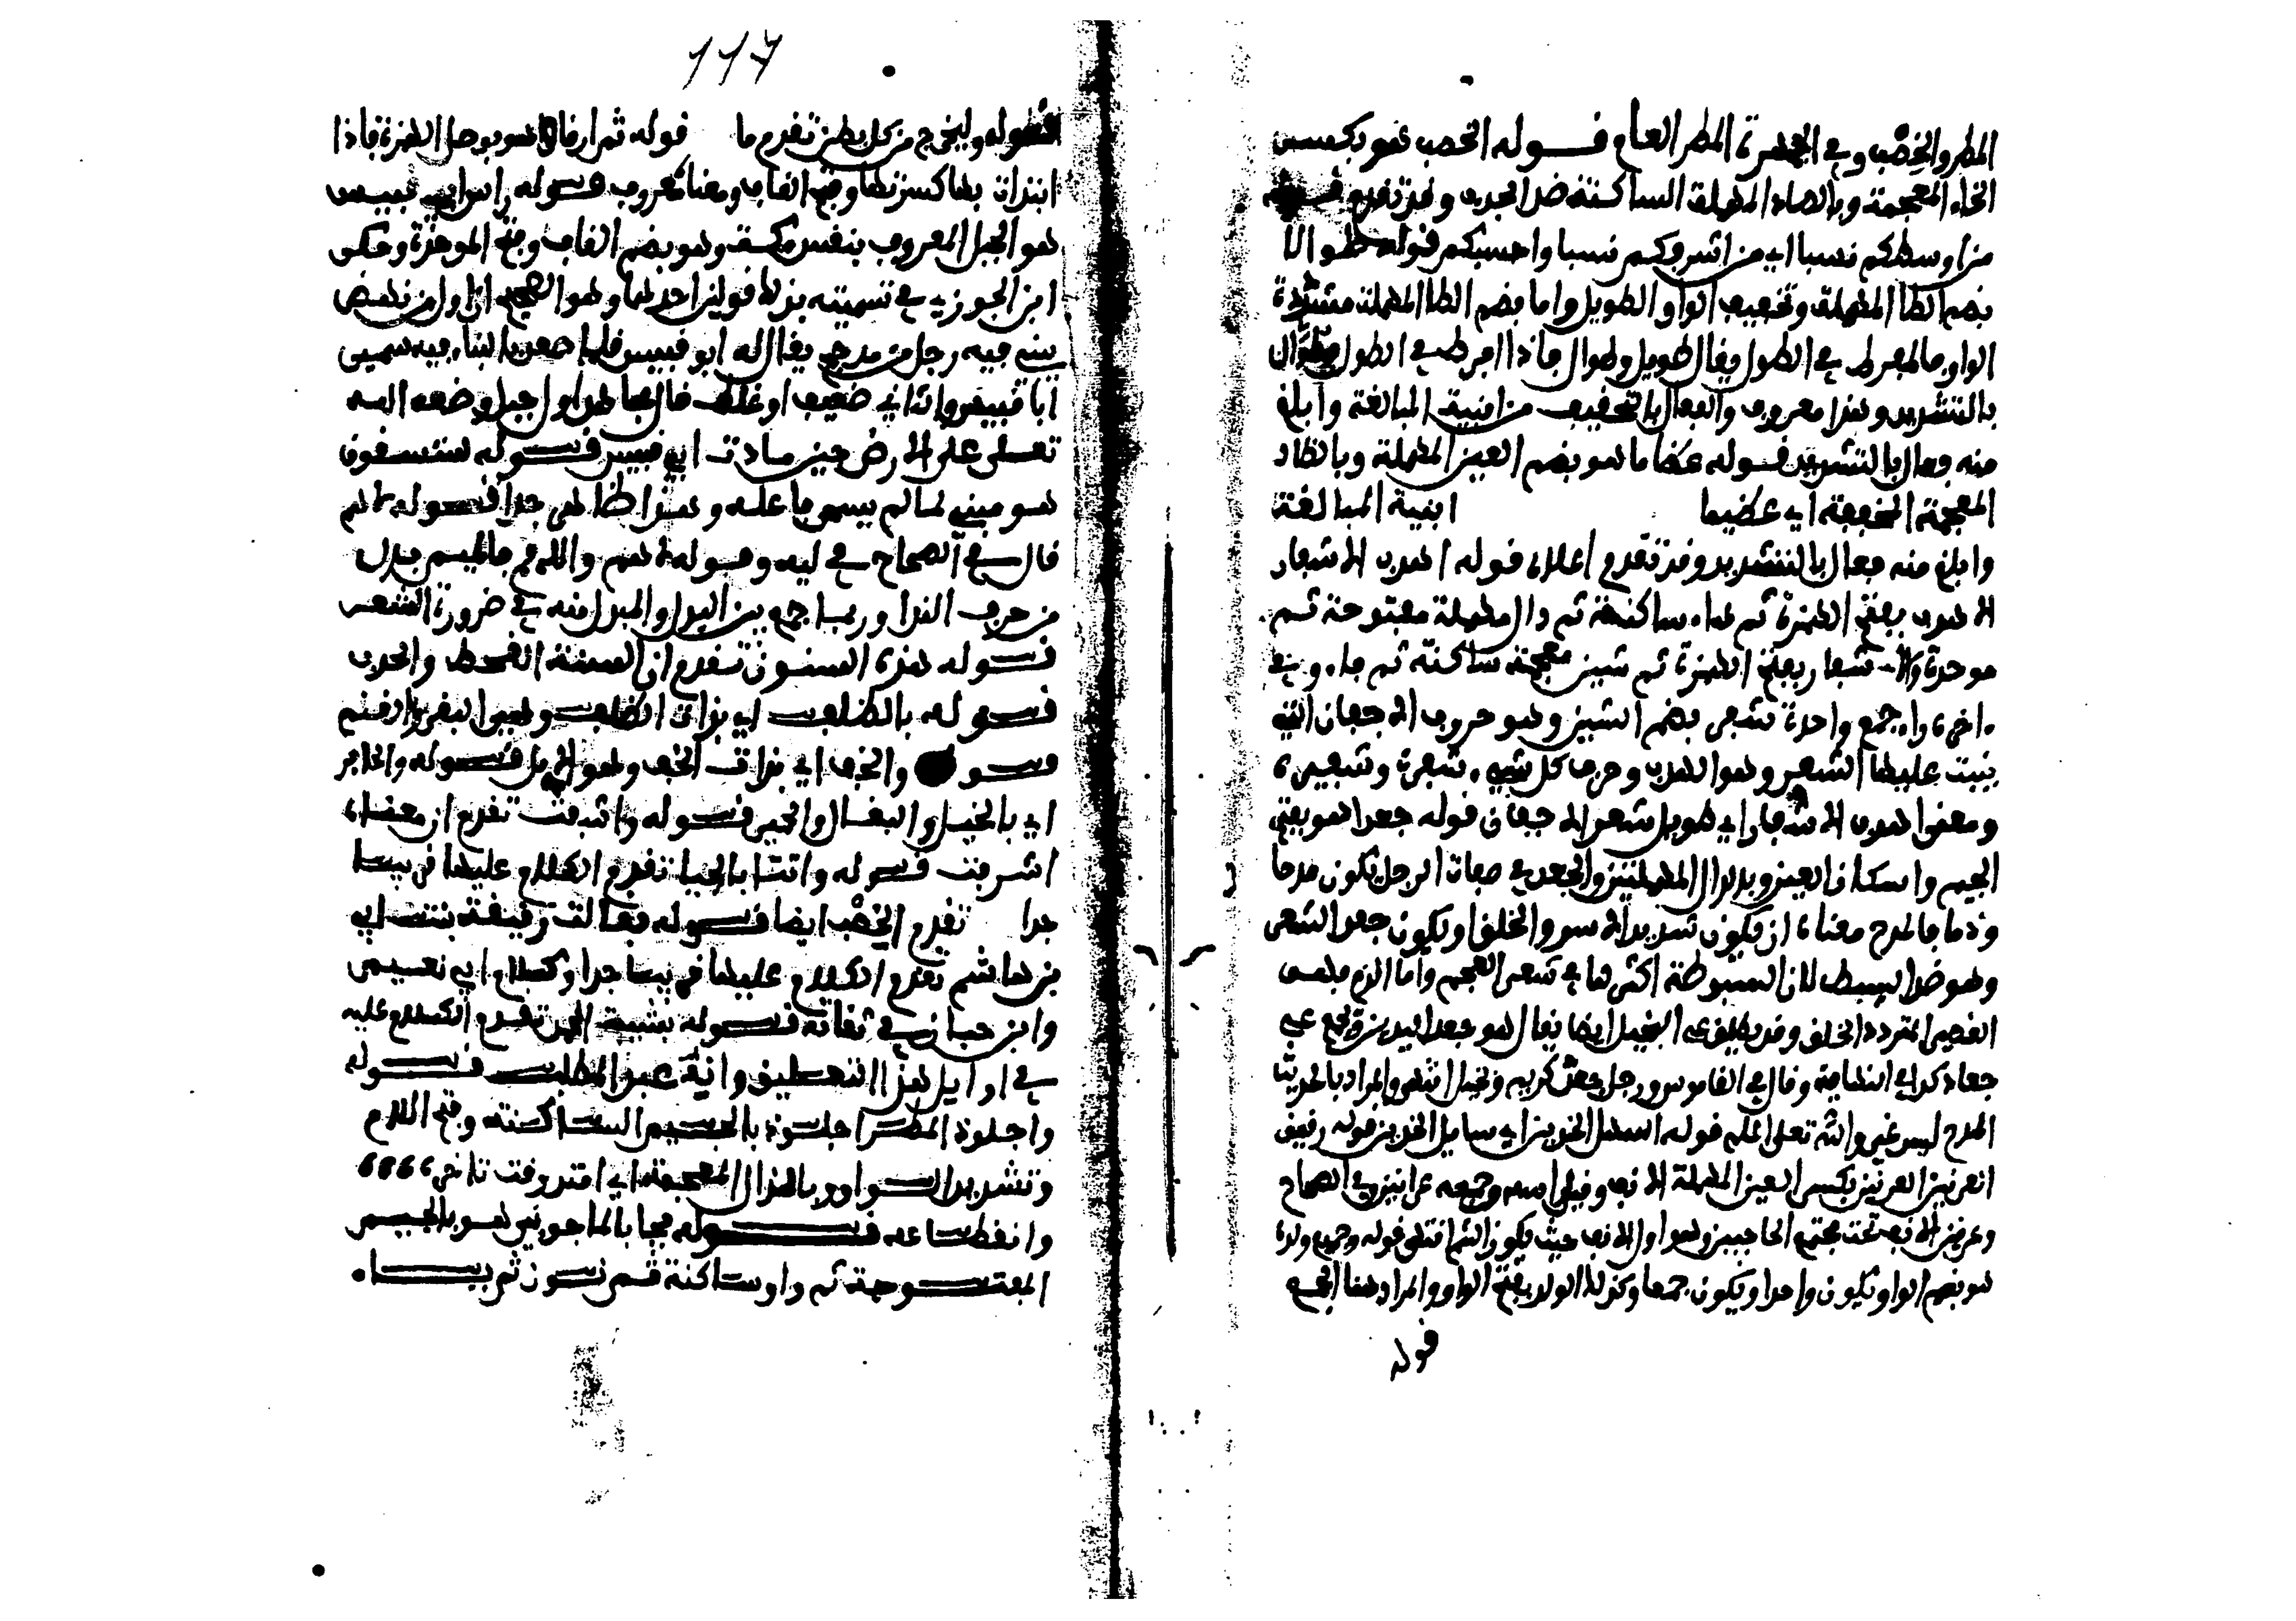 المطر والخِصْب وفي الجمهرة المطر العام قوله الخصب هو بكسر
الخاء المعجمة وبالصاد المهملة الساكنة ضد الجدب وقد تقدم قوله
من اوسطكم نسبا اي من اشرفكم نسبا واحسبكم قوله طوالا
بضم الطا المهملة وتخفيف الواو الطويل واما بضم الطا المهملة مشددة
الواو فالمفرط في الطول يقال طويل وطوال فاذا افرط في الطول طوّال
بالتشديد وهذا معروف والفعال بالتخفيف من ابنية المبالغة وابلغ
منه فعال بالتشديد قوله عظاما هو بضم العين المهملة وبالظاء
المعجمة المخففة اي عظيما ابنية المبالغة
وابلغ منه فعال بالتشديد وقد تقدم اعلاه قوله اهدب الاشفار
الاهدب بفتح الهمزة ثم هاء ساكنة ثم دال مهملة مفتوحة ثم
موحدة والاشفار بفتح الهمزة ثم شين معجمة ساكنة ثم فاء وفي
ءاخره راء جمع واحدة شفر بضم الشين وهو حروف الاجفان التي
ينبت عليها الشعر وهو الهدب وحرف كل شيء شفره وشفيره
ومعنى اهدب الاشفار اي طويل شعر الاجفان قوله جعدا هو بفتح
الجيم واسكان العين وبدال المهملتين والجعد في صفات الرجل يكون مدحا
وذما فالمدح معناه ان يكون شديد الاسر والخلق او يكون جعد الشعر
وهو ضد السبط لان السبوطة اكثرها في شعر العجم واما الذم فلمعنى
القصير المتردد الخلق وقد يطلق على البخيل ايضا يقال هو جعد اليدين ويجمع على
جعاد كذا في النهاية وقال في القاموس ورجل جعد كريم وبخيل انتهى والمراد بالحديث
المدح ليس غير والله تعلى اعلم قوله اسهل الخدين اي سايل الخدين قوله رقيق
العرنين العرنين بكسر العين المهملة الانف وقيل راسه وجمعه عرانين وفي الصحاح
وعرنين الانف تحت مجتمع الحاجبين وهو اول الانف حيث يكون الشم انتهى قوله وجميع ولده
هو بضم الواو ويكون واحدا ويكون جمعا وكذلك الولد بفتح الواو والمراد هنا الجمع
قوله
117
قوله وليخرج من كل بطن تقدم ما قوله ثم ارقاوا هو بوصل الهمزة فاذا
ابتدات بها كسرتها وفتح القاف ومعناه معروف قوله راس ابي قبيس
هو الجبل المعروف بنفس مكة وهو بضم القاف وفتح الموحدة وحكى
ابن الجوزي في تسميته بذلك قولين احدهما وهو الصحيح ان اول من نهض
يبني فيه رجل من مذحج يقال له ابو قبيس فلما صعد بالبناء فيه سمي
ابا قبيس والثاني ضعيف او غلط قال مجاهد اول جبل وضعه الله
تعلى على الارض حين مادت ابي قبيس قوله يستسقون
هو مبني لما لم يسم فاعله وهذا ظاهر جدا قوله لاهم
قال في الصحاح في ليه وقوله لاهم واللهم فالميم بدل
من حرف الندا وربما جمع بين البدل والمبدل منه في ضرورة الشعر
قوله هذه السنون تقدم ان السنة القحط والجدب
قوله بالظلف اي بذات الظلف وهي البقر والغنم
قوله والخف اي بذات الخف وهو الابل قوله والحافر
اي بالخيل والبغال والحمير قوله واشفت تقدم ان معناه
اشرفت قوله واتنا بالحيا تقدم الكلام عليها قريبا
جدا تقدم الخِصْب ايضا قوله فقالت رقيقة بنت ابي
بن هاشم تقدم الكلام عليها قريبا جدا وكلام ابي نعيم
وابن حبان في ثقاته قوله بشيبة الحمد تقدم الكلام عليه
في اوايل هذا التعليق وانه عبد المطلب قوله
واجلوذ المطر اجلوذ بالجيم الساكنة وفتح اللام
وتشديد الواو وبالذال المعجمة اي امتد وقت تاخره
وانقطاعه قوله فجا بالما جوني هو بالجيم
المفتوحة ثم واو ساكنة ثم نون ثم ياء